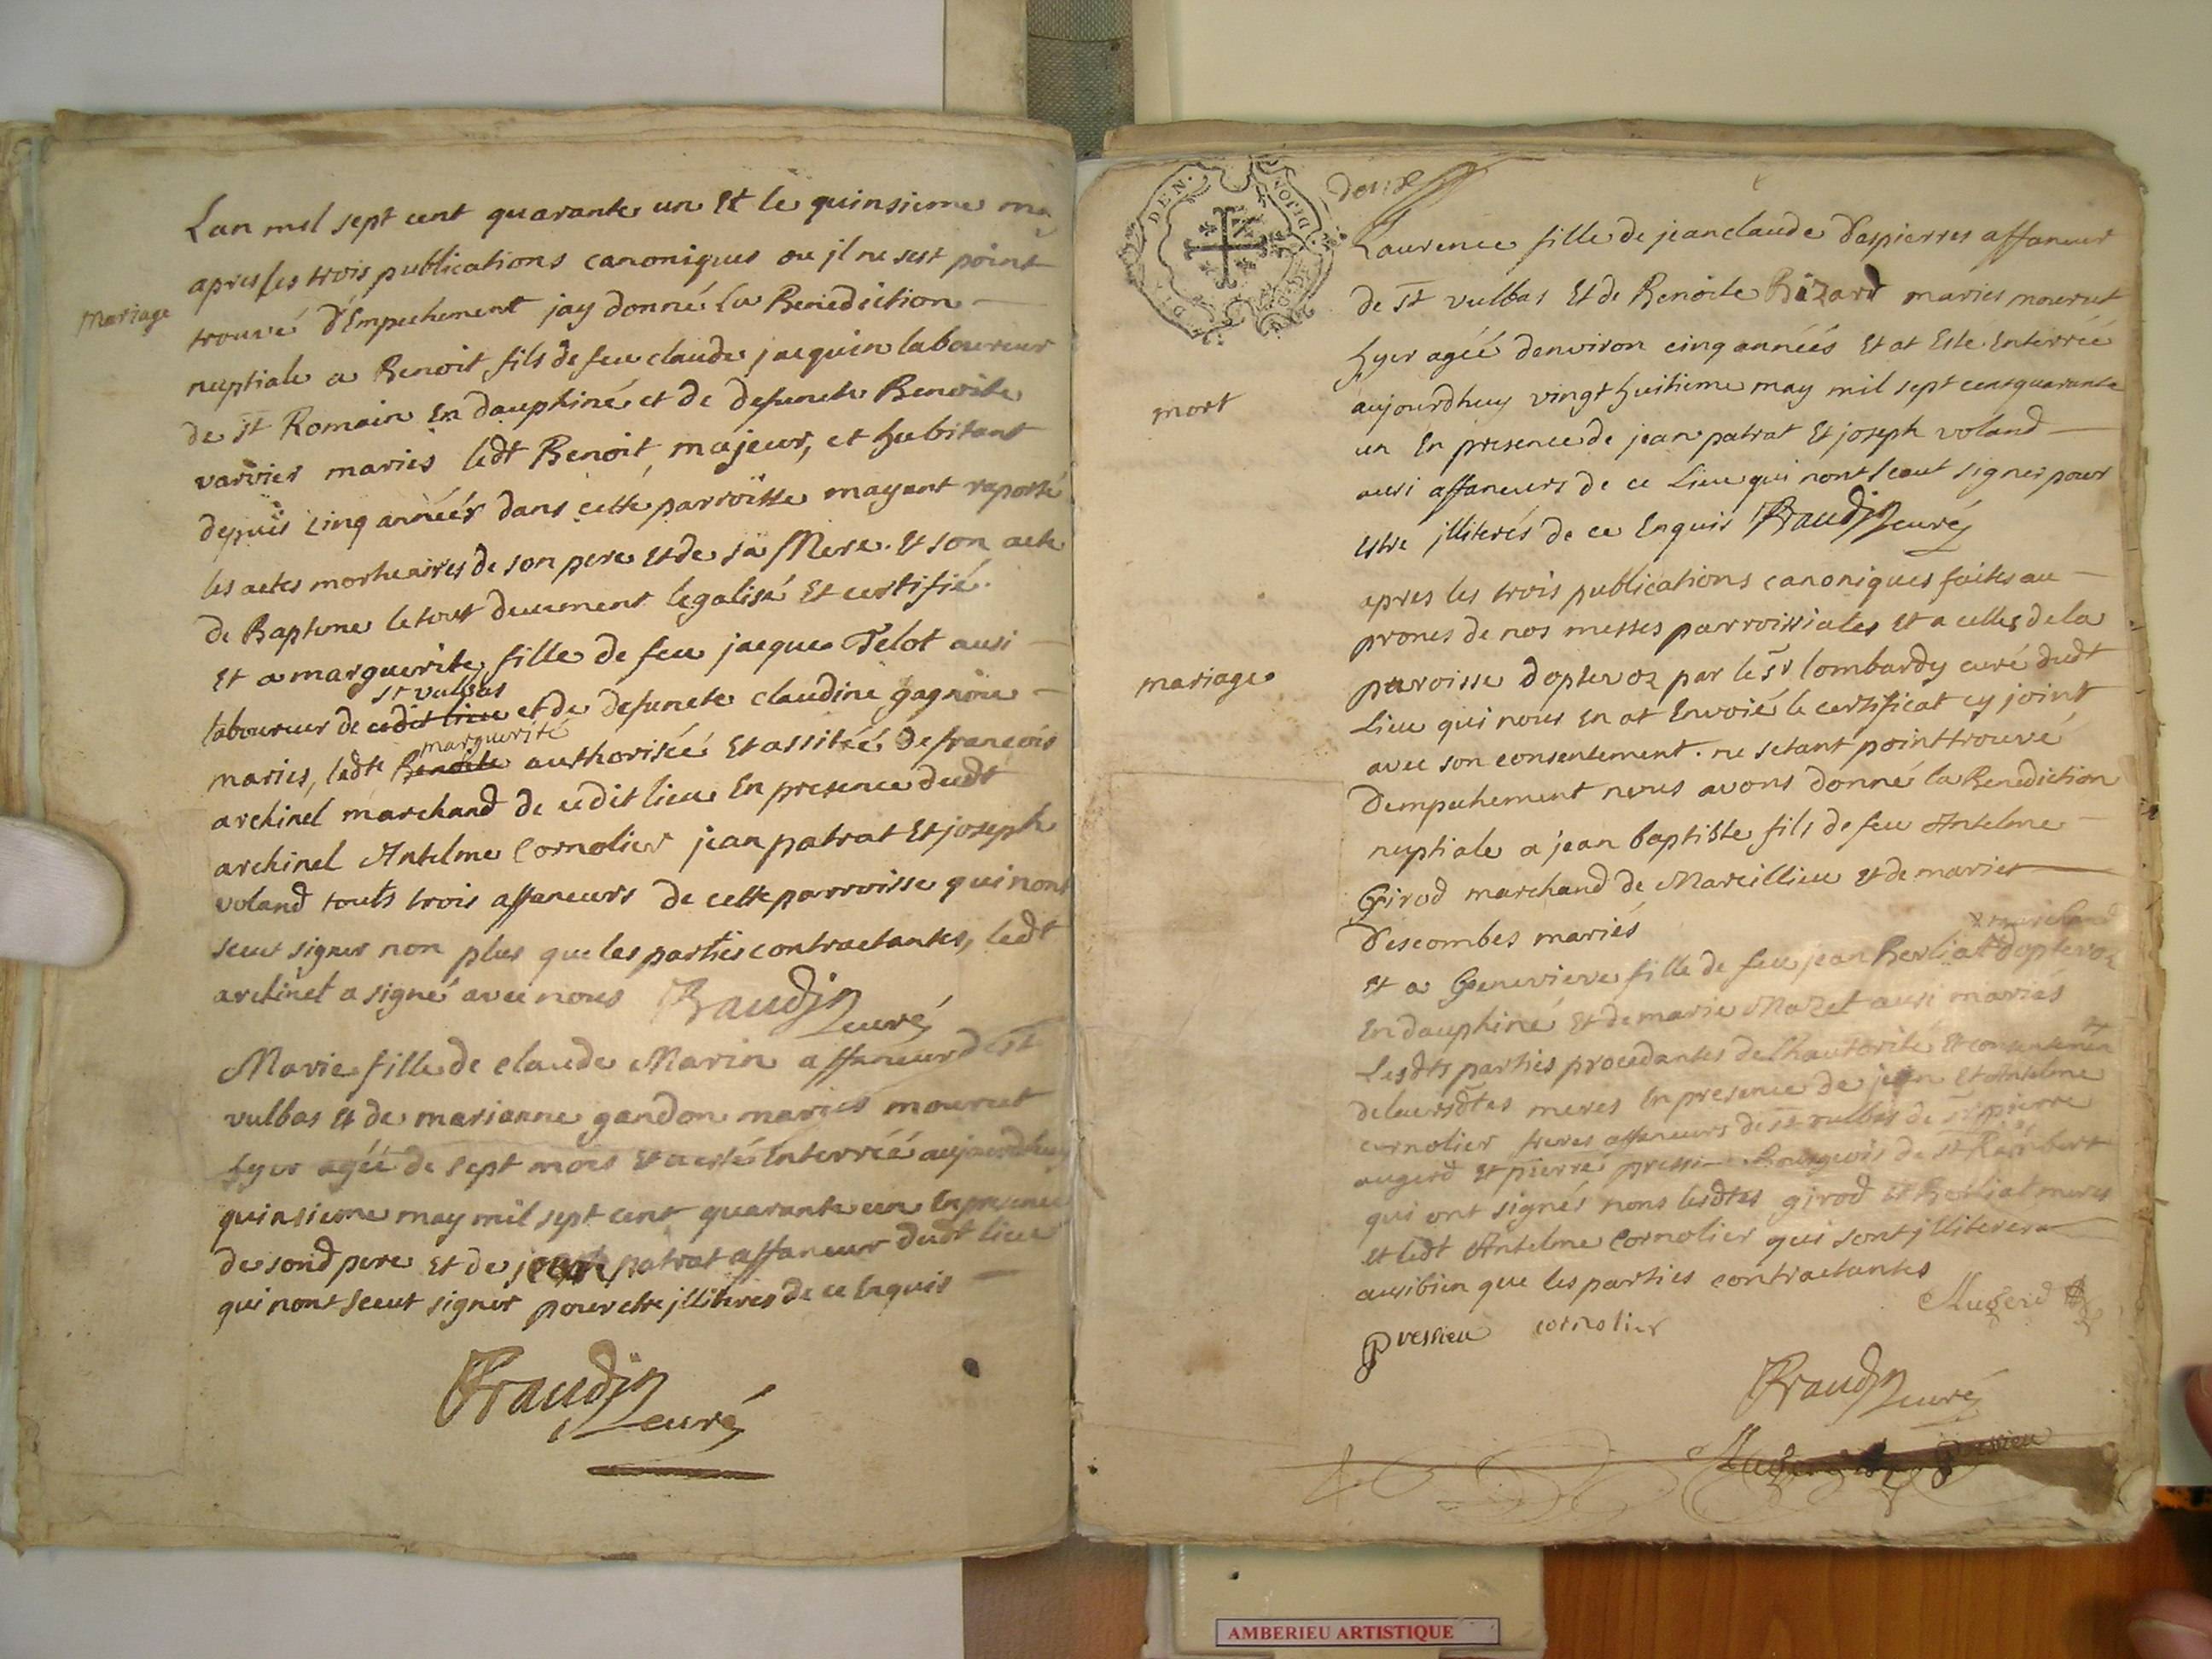 Lan mil sept cent quarante un Et le quinsieme may
apres les trois publications canoniques ou jl ne sest point
Mariage
trouvé d'Empechement jay donné La Benediction
nuptiale a Benoit fils de feu claude jacquin laboureur
de st Romain En dauphiné et de defuncte Benoite
varvier mariés ledt Benoit, majeur, et habitant
depuis cinq années dans cette parroisse mayant raporté
les actes mortuaires de son pere et de sa Mere. Et son acte
de Bapteme le tout duement legalisé Et certifié.
Et a marguerite fille de feu jacque Telot ausi
st vulbas
laboureur de cedit lieu et de defuncte claudine gagnieu
marguerite
mariés, ladte Benoite authorisée Et assitée de françois
archinel marchand de cedit lieu En presence dudt
archinel Antelme Cornolier jean patrat Et joseph
voland touts trois affaneurs de cette parroisse qui nont
sceut signer non plus que les parties contractantes, ledt
archinel a signé avec nous Baudin
curé
Marie fille de claude Marin affaneur de st
vulbas et de marianne gandon mariés mourut
hyer agéé de sept mois et a esté Enterréé aujourdhuy
quinsieme may mil sept cent quarante un En presence
de sond pere Et de jean patrat affaneur dudt lieu
qui nont sceut signer pour etre jlliteres de ce Enquis
Baudin
curé
DEN.
DIJON
Laurence fille de jean claude Daspierres affaneur
de st vulbas Et de Benoite Bizard mariés mourut
hyer agéé denviron cinq annéés Et at Este Enterréé
mort
aujourdhuy vingt huitieme may mil sept cent quarante
un En presence de jean patrat Et joseph voland
ausi affaneurs de ce Lieu qui nont sceut signer pour
estre jlliterés de ce Enquis Baudin curé
apres les trois publications canoniques faites au
prones de nos messes parroissiales Et a celles de la
mariage
paroisse dopterox par le sr lombardy curé dudt
Lieu qui nous En at Envoié le certificat cy joint
avec son consentement. ne setant point trouvé
Dempechement nous avons donné la Benediction
nuptiale a jean baptiste fils de feu Antelme
Girod marchand de Marcillieu et de marie
Descombes mariés
marchand
Et a Genevieve fille de feu jean Berliat dopterox
En dauphiné Et de marie Mazet ausi mariés
Lesdts parties procedantes de lhautorité Et consentement
de leursdtes meres En presence de jean Et Antelme
cornolier freres affaneurs de st vulbas de sr pierre
augerd Et pierre Bourgeois de st Rambert
qui ont signés nons lesdtes girod et Berliat meres
et ledt Antelme Cornolier qui sont jlliteres
ausibien que les parties contractantes
Pressieu cornolier Augerd
Baudin
curé
AMBERIEU ARTISTIQUE